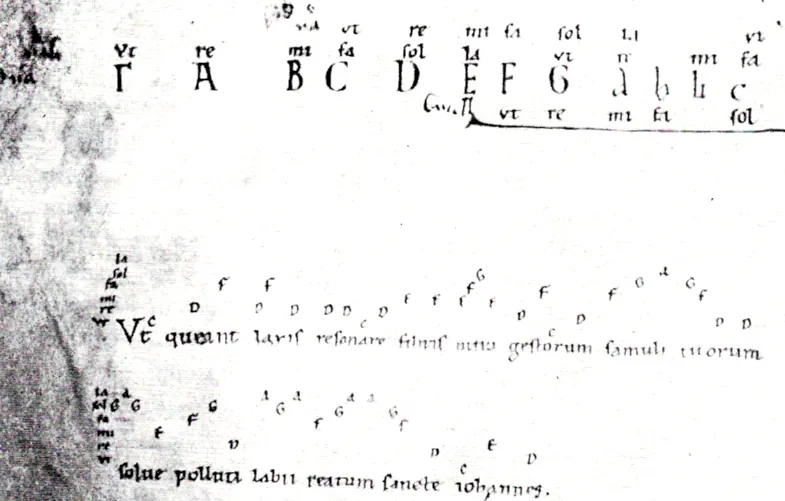 ut re mi fa sol la ut
ut re mi fa sol la ut re mi fa
Γ A B C D E F G a b h c
ut re mi fa sol
la
sol
fa F F F G F F G a G F
mi
re D D D D D D E E E E D D D D
ut C C C
Ut queant laxis resonare fibris mira gestorum famuli tuorum
la a a a a
sol G G G G G G
fa F F F
mi E E
re D D D
ut C
solue polluti labii reatum sancte iohannes.